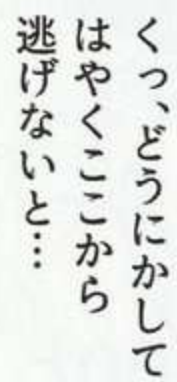 くっ、どうにかして
はやくここから
逃げないと…